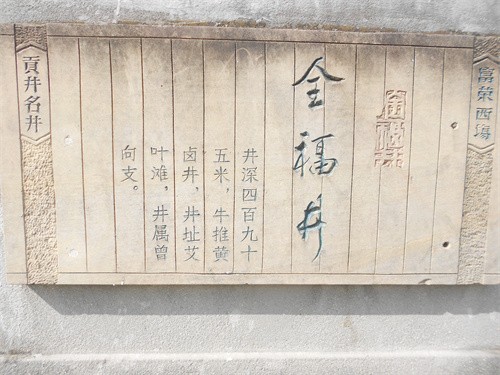 富荣西場
全福井
井深四百九十
五米，牛推黄
卤井，井址艾
叶滩，井属曾
向支。
貢井名井